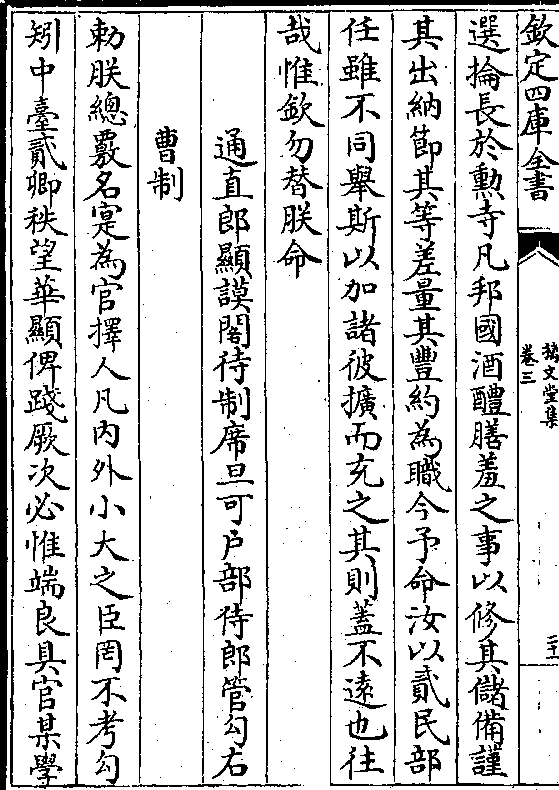 欽定四庫全書
摛文堂集
卷三
選掄長於勲寺凡邦國酒醴膳羞之事以修其儲備謹
其出納節其等差量其豐約為職今予命汝以貳民部
任雖不同舉斯以加諸彼擴而充之其則蓋不遠也往
哉惟欽勿替朕命
通直郎顯謨閣待制席旦可户部侍郎管勾右
曹制
勅朕總覈名寔為官擇人凡内外小大之臣罔不考勾
矧中臺貳卿秩望華顯俾踐厥次必惟端良具官某學